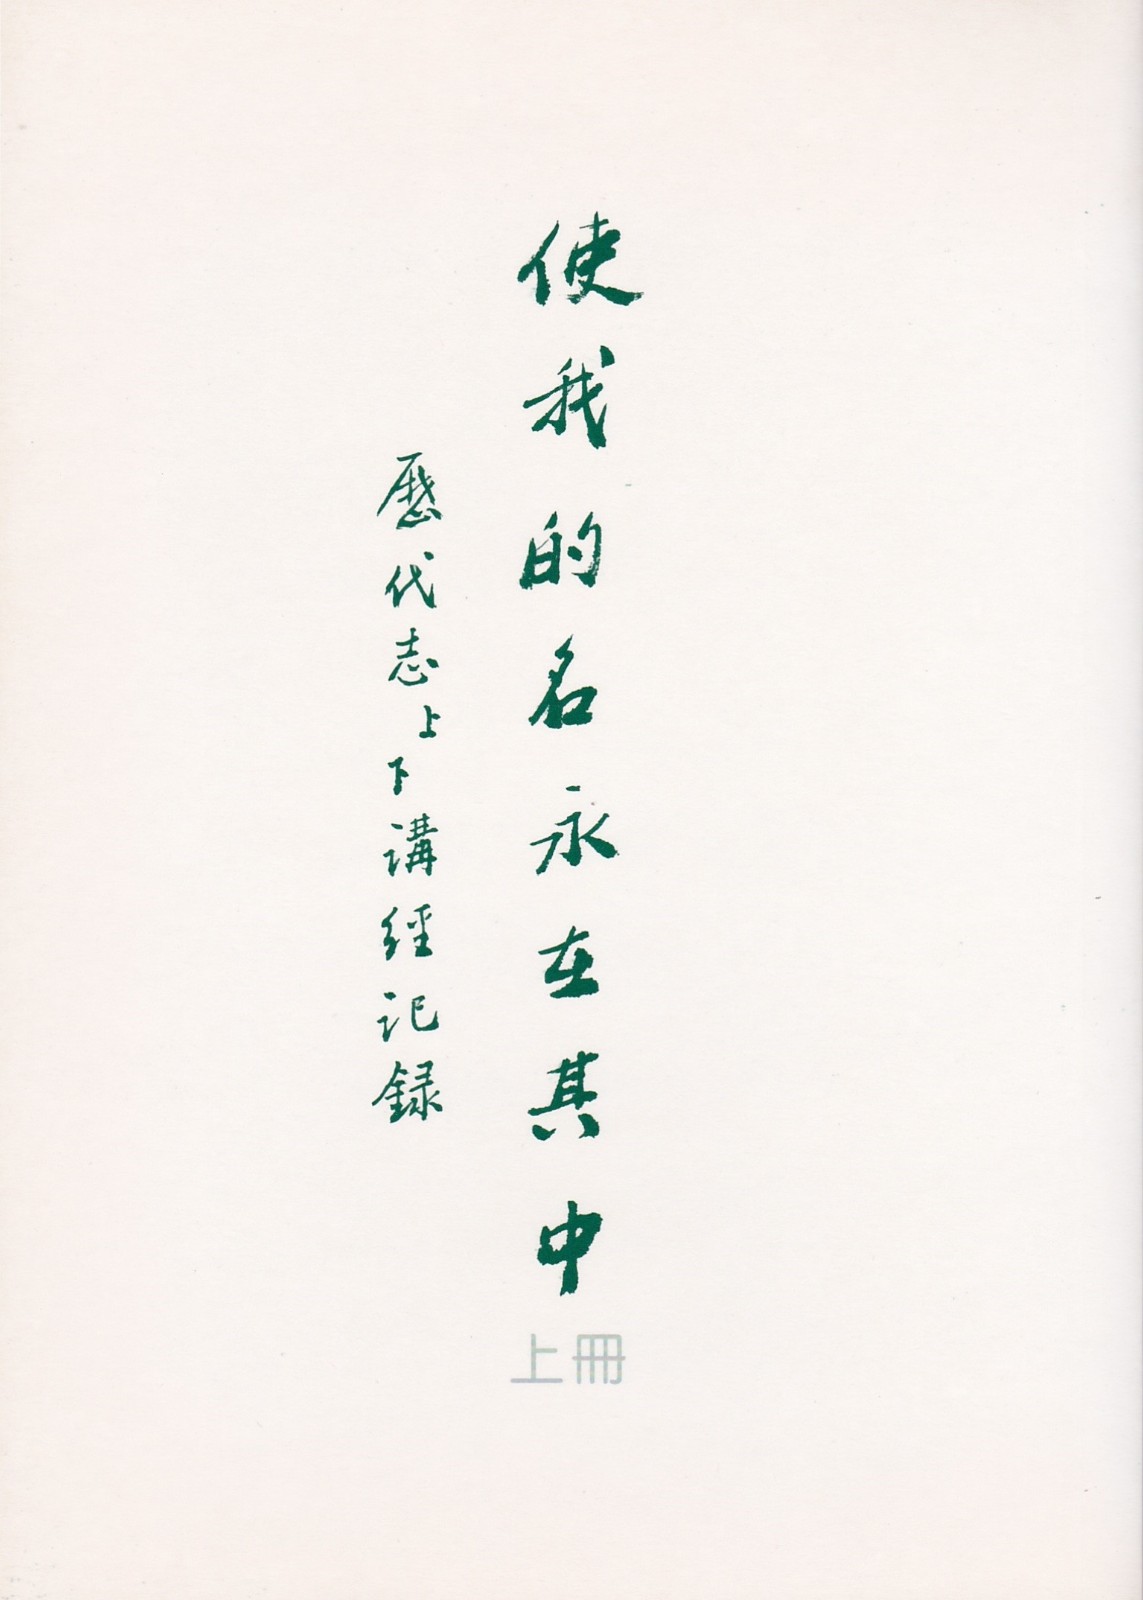 使我的名永在其中
歷代志上下講經記録
上冊